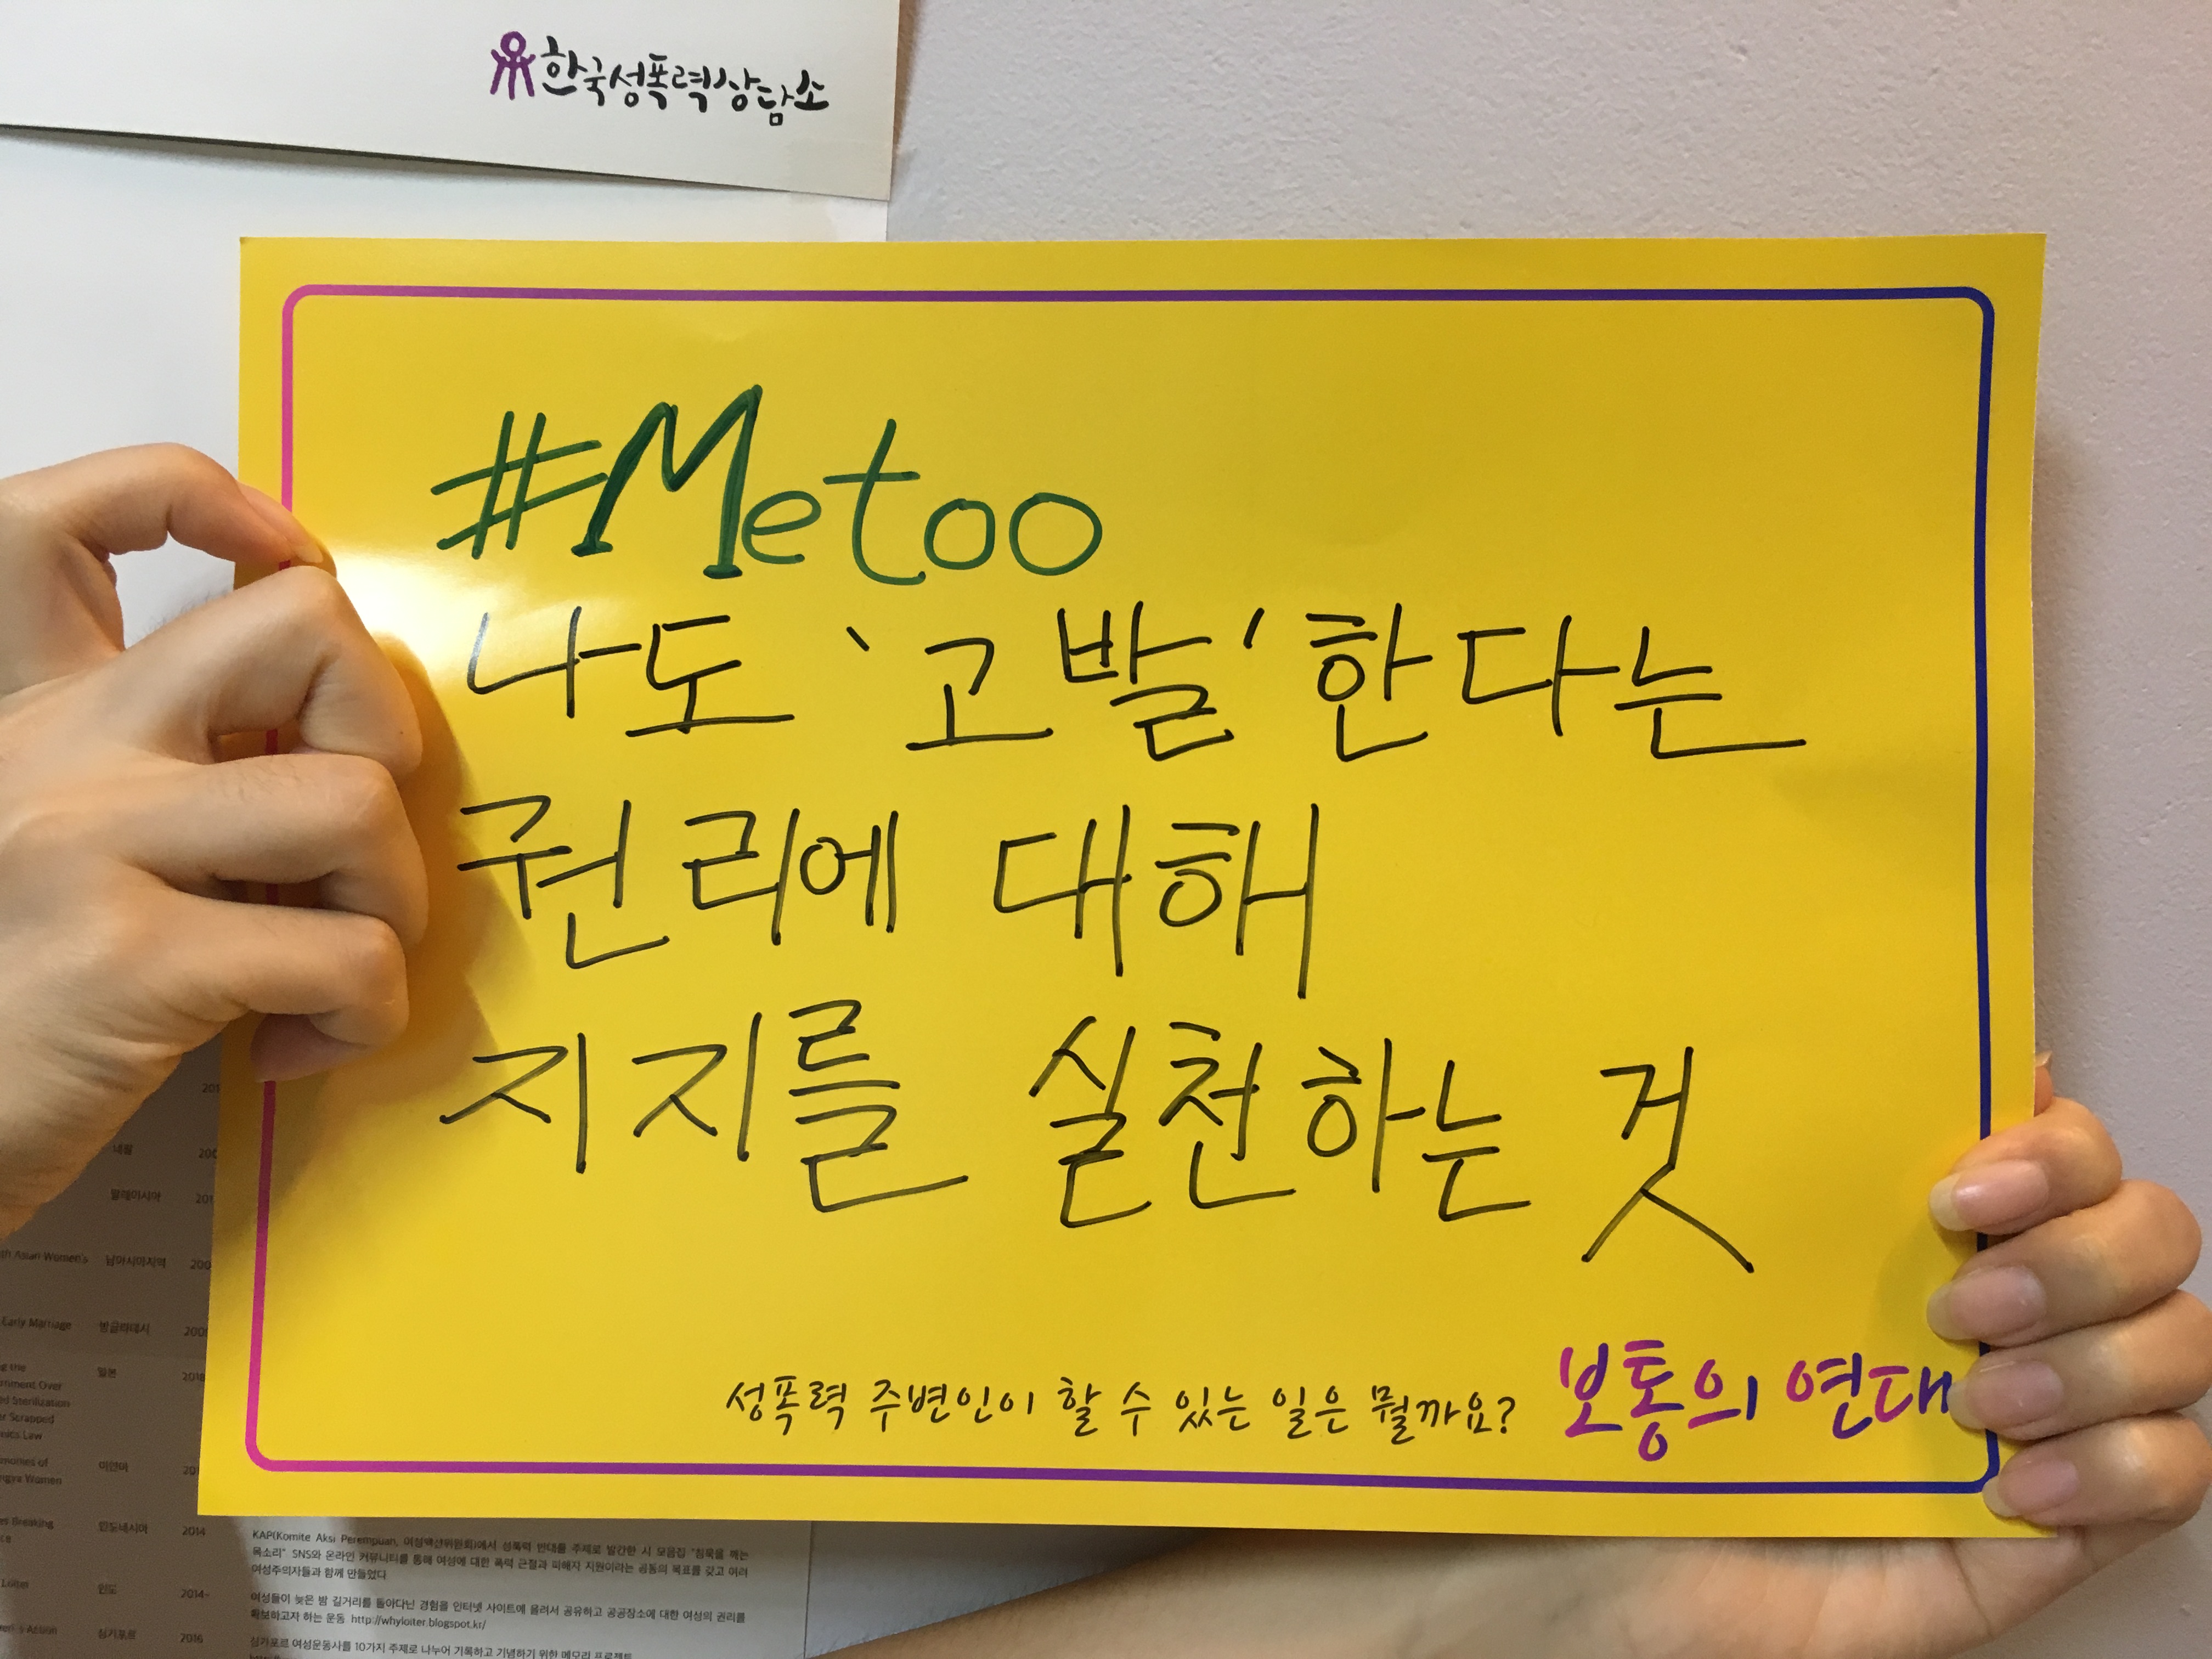 한국성폭력상담소
#Metoo
나도 '고발'한다는
권리에 대해
지지를 실천하는 것
성폭력 주변인이 할 수 있는 일은 뭘까요? 보통의 연대
네팔
말레이시아
Asian Women's 남아시아지역
Early Marriage 방글라데시
일본 2018
Over
Sterilization
Scrapped
Law
미얀마
Women
Breaking 인도네시아 2014
KAP(Komite Aksi Perempuan, 여성액션위원회)에서 성폭력 반대를 주제로 발간한 시 모음집 "침묵을 깨는
목소리" SNS와 온라인 커뮤니티를 통해 여성에 대한 폭력 근절과 피해자 지원이라는 공동의 목표를 갖고 여러
여성주의자들과 함께 만들었다
Loiter 인도 2014-
여성들이 늦은 밤 길거리를 돌아다닌 경험을 인터넷 사이트에 올려서 공유하고 공공장소에 대한 여성의 권리를
확보하고자 하는 운동 http://whyloiter.blogspot.kr/
싱가포르 2016
싱가포르 여성운동사를 10가지 주제로 나누어 기록하고 기념하기 위한 메모리 프로젝트